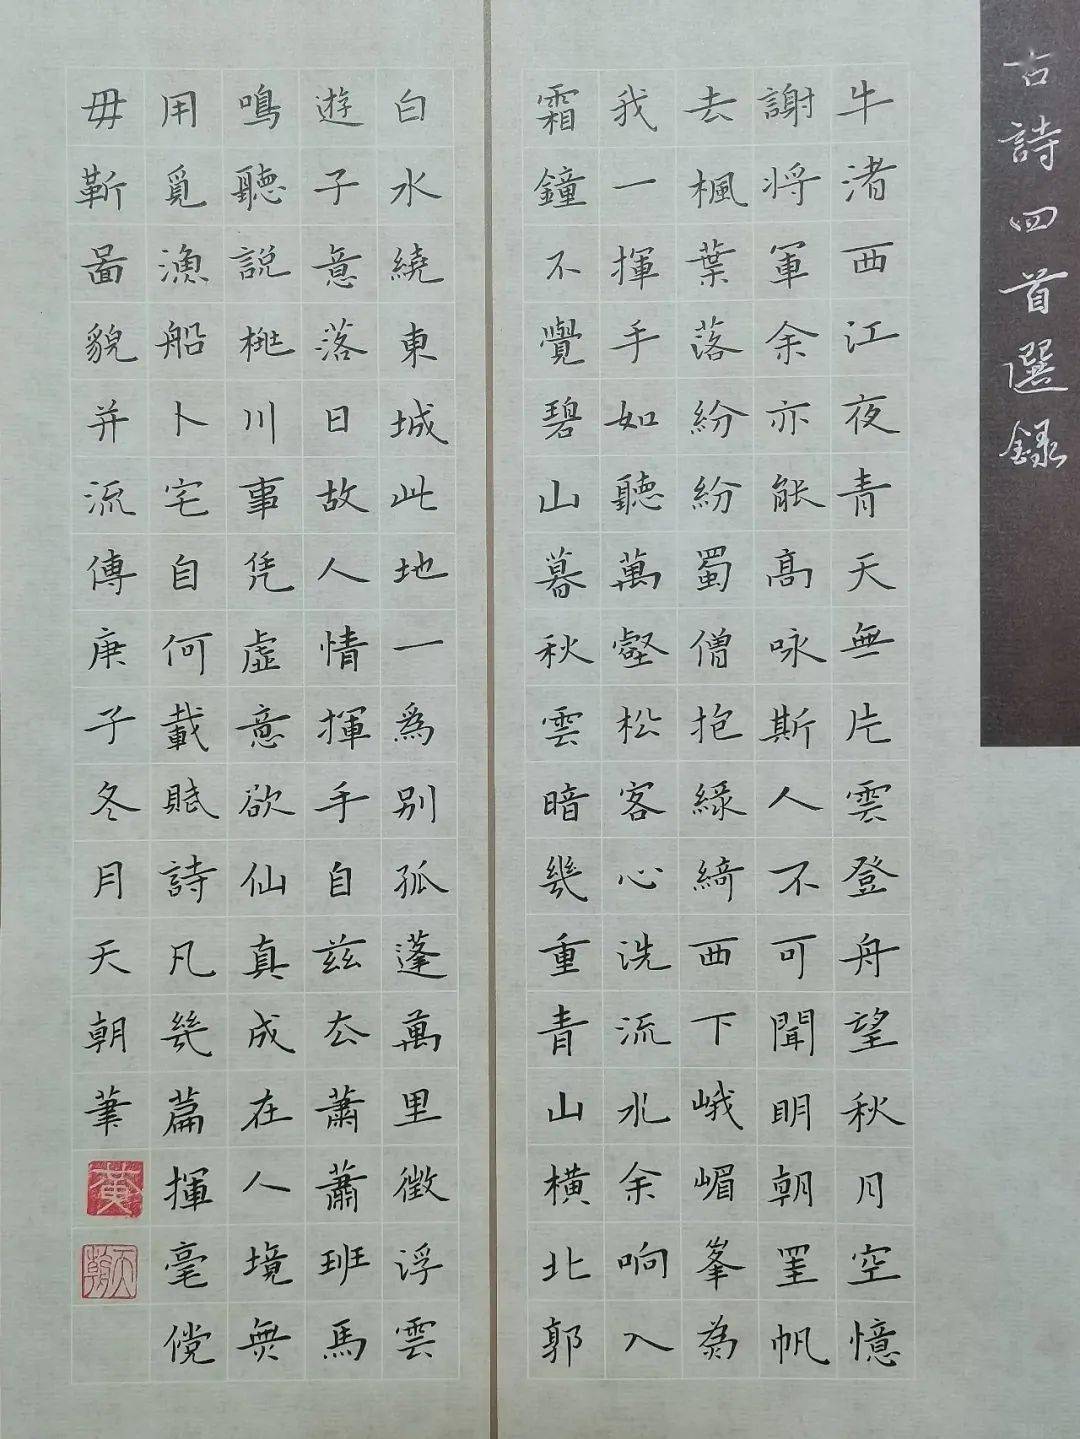 古詩四首選錄
牛渚西江夜青天無片雲登舟望秋月空憶
謝將軍余亦能高咏斯人不可聞明朝罣帆
去楓葉落紛紛蜀僧抱綠綺西下峨嵋峯為
我一揮手如聽萬壑松客心洗流水余响入
霜鐘不覺碧山暮秋雲暗幾重青山橫北郭
白水繞東城此地一為别孤蓬萬里徵浮雲
遊子意落日故人情揮手自茲厺蕭蕭班馬
鳴聽說桃川事凭虛意欲仙真成在人境無
用覓漁船卜宅自何載賦詩凡幾篇揮毫儻
毋靳啚貌并流傳庚子冬月天朝筆
黃
天朝